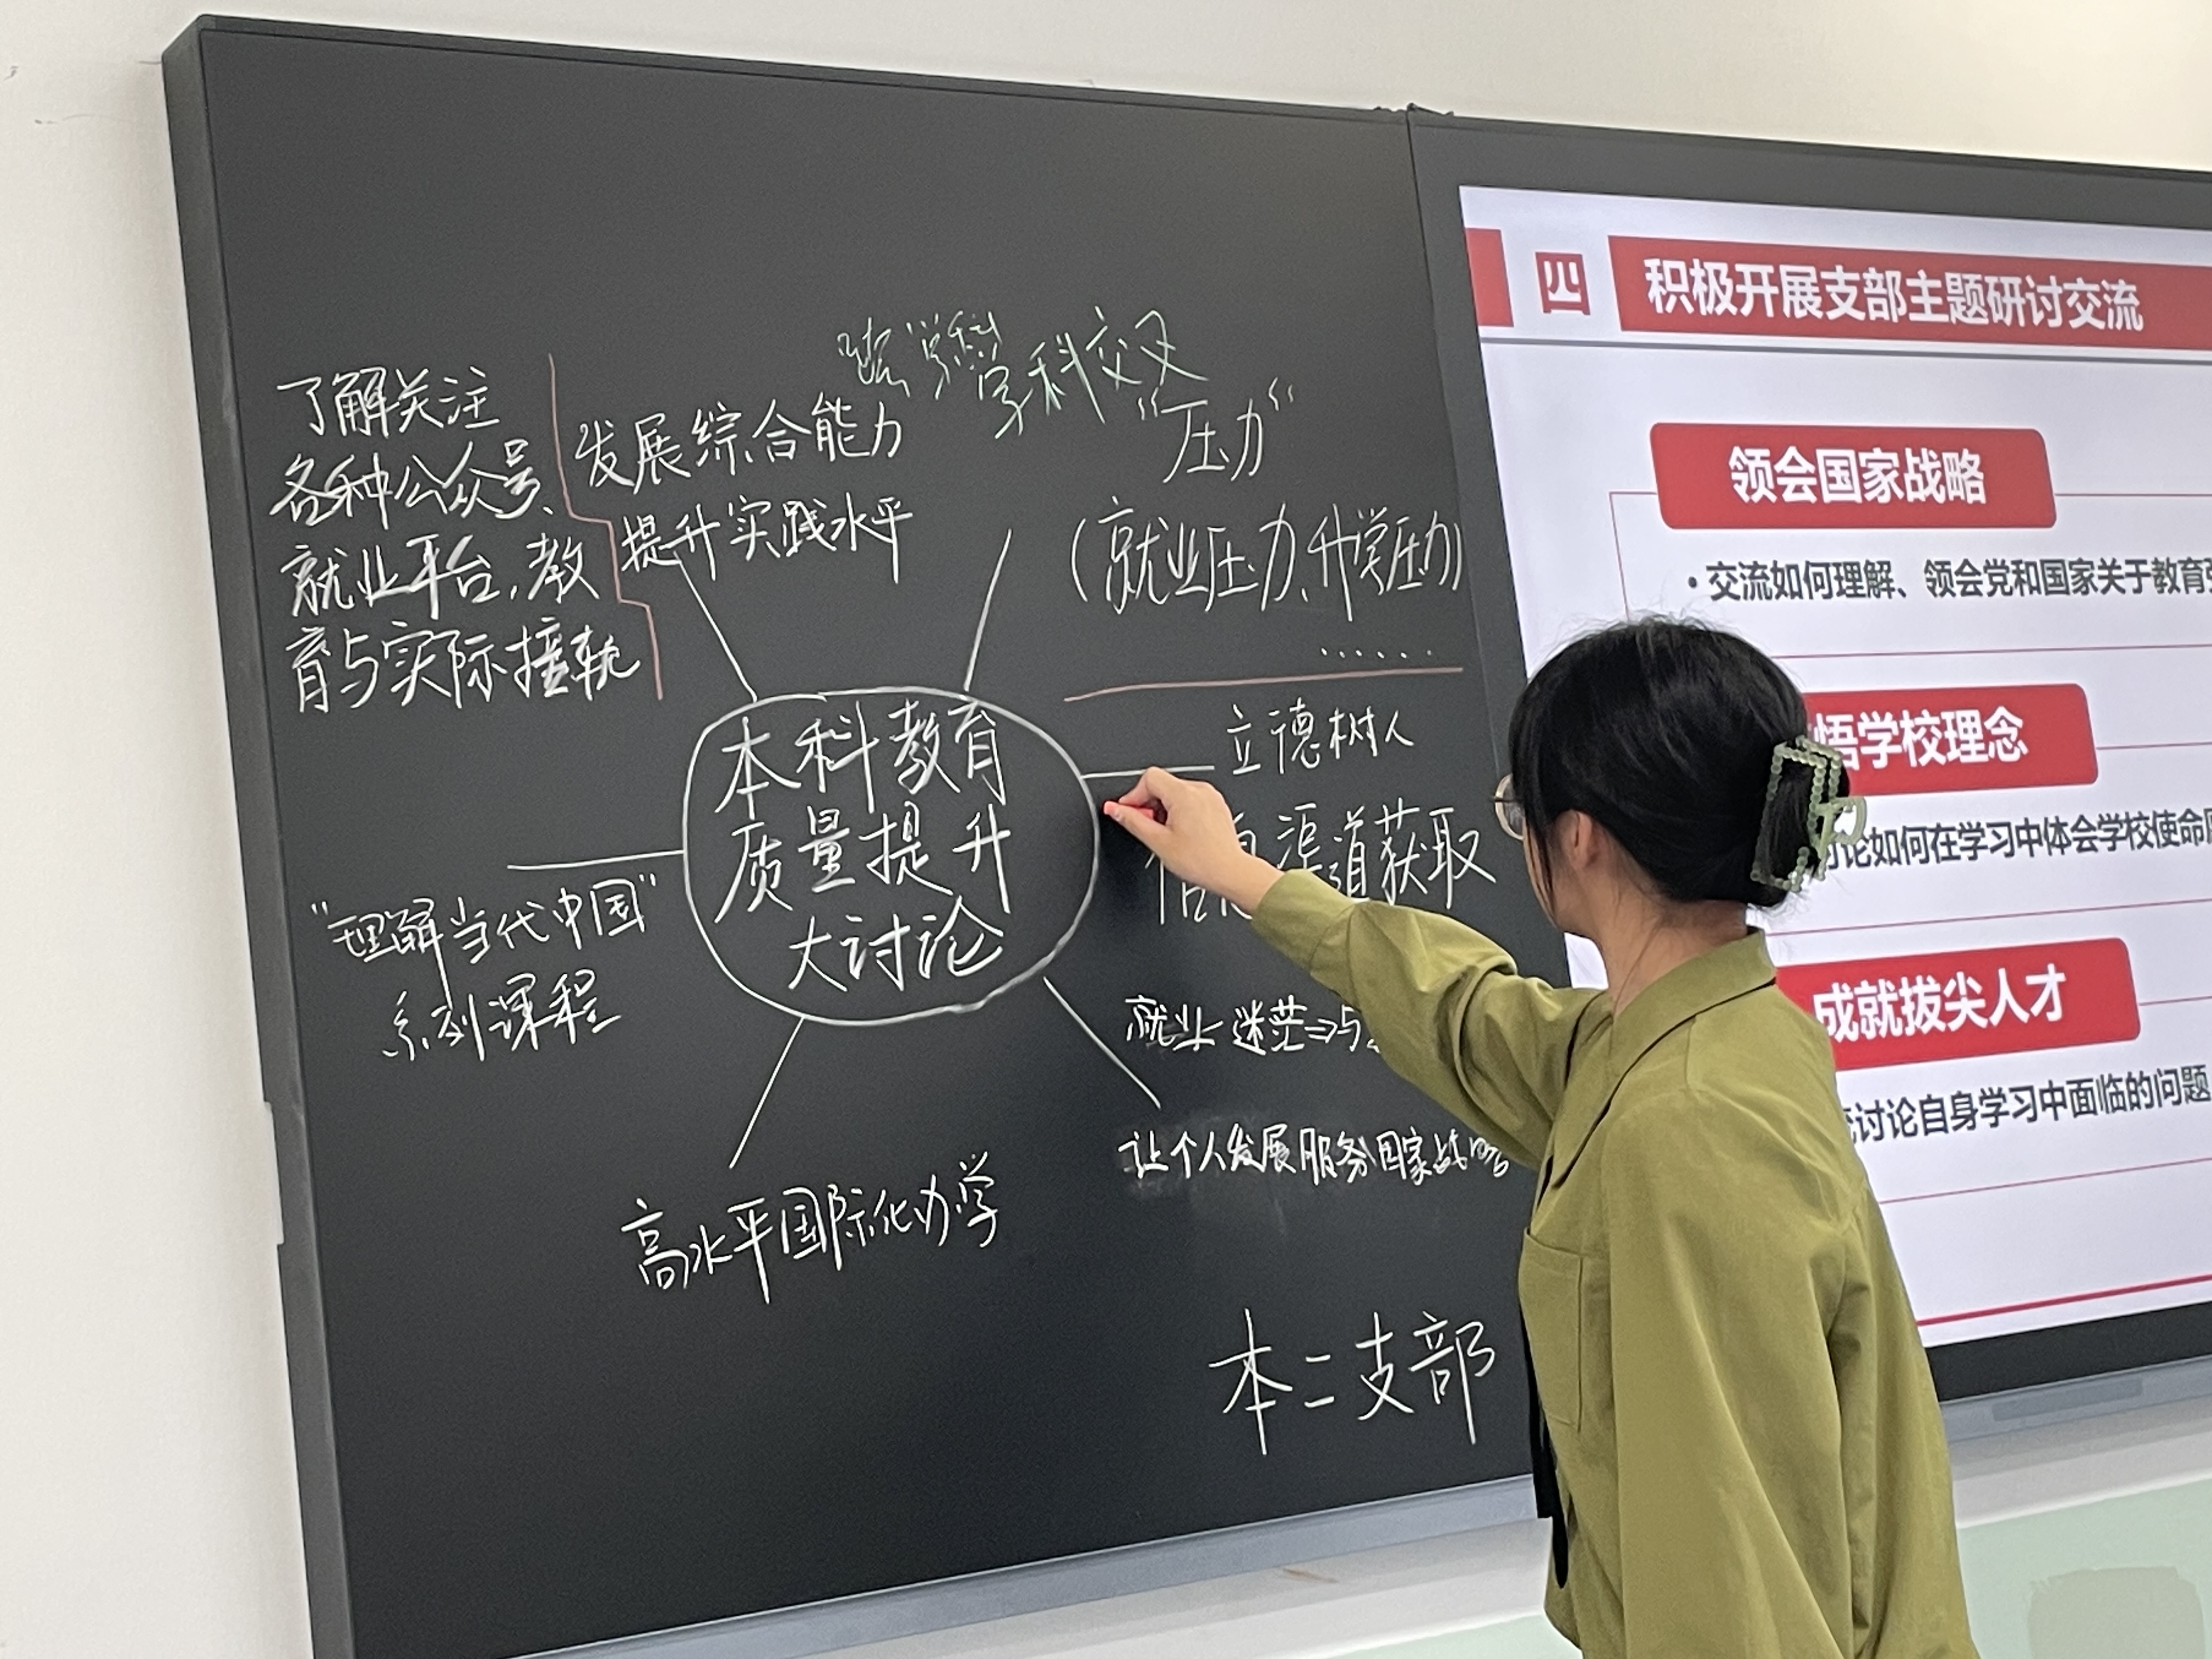 跨学科
学科交叉
了解关注
各种公众号、
就业平台,教
育与实际接轨
发展综合能力
提升实践水平
"压力"
(就业压力、升学压力)
……
立德树人
信息渠道获取
就业迷茫⇒与
让个人发展服务国家战略
本科教育
质量提升
大讨论
"理解当代中国"
系列课程
高水平国际化办学
本二支部
四 积极开展支部主题研讨交流
领会国家战略
•交流如何理解、领会党和国家关于教育
悟学校理念
讨论如何在学习中体会学校使命
成就拔尖人才
讨论自身学习中面临的问题